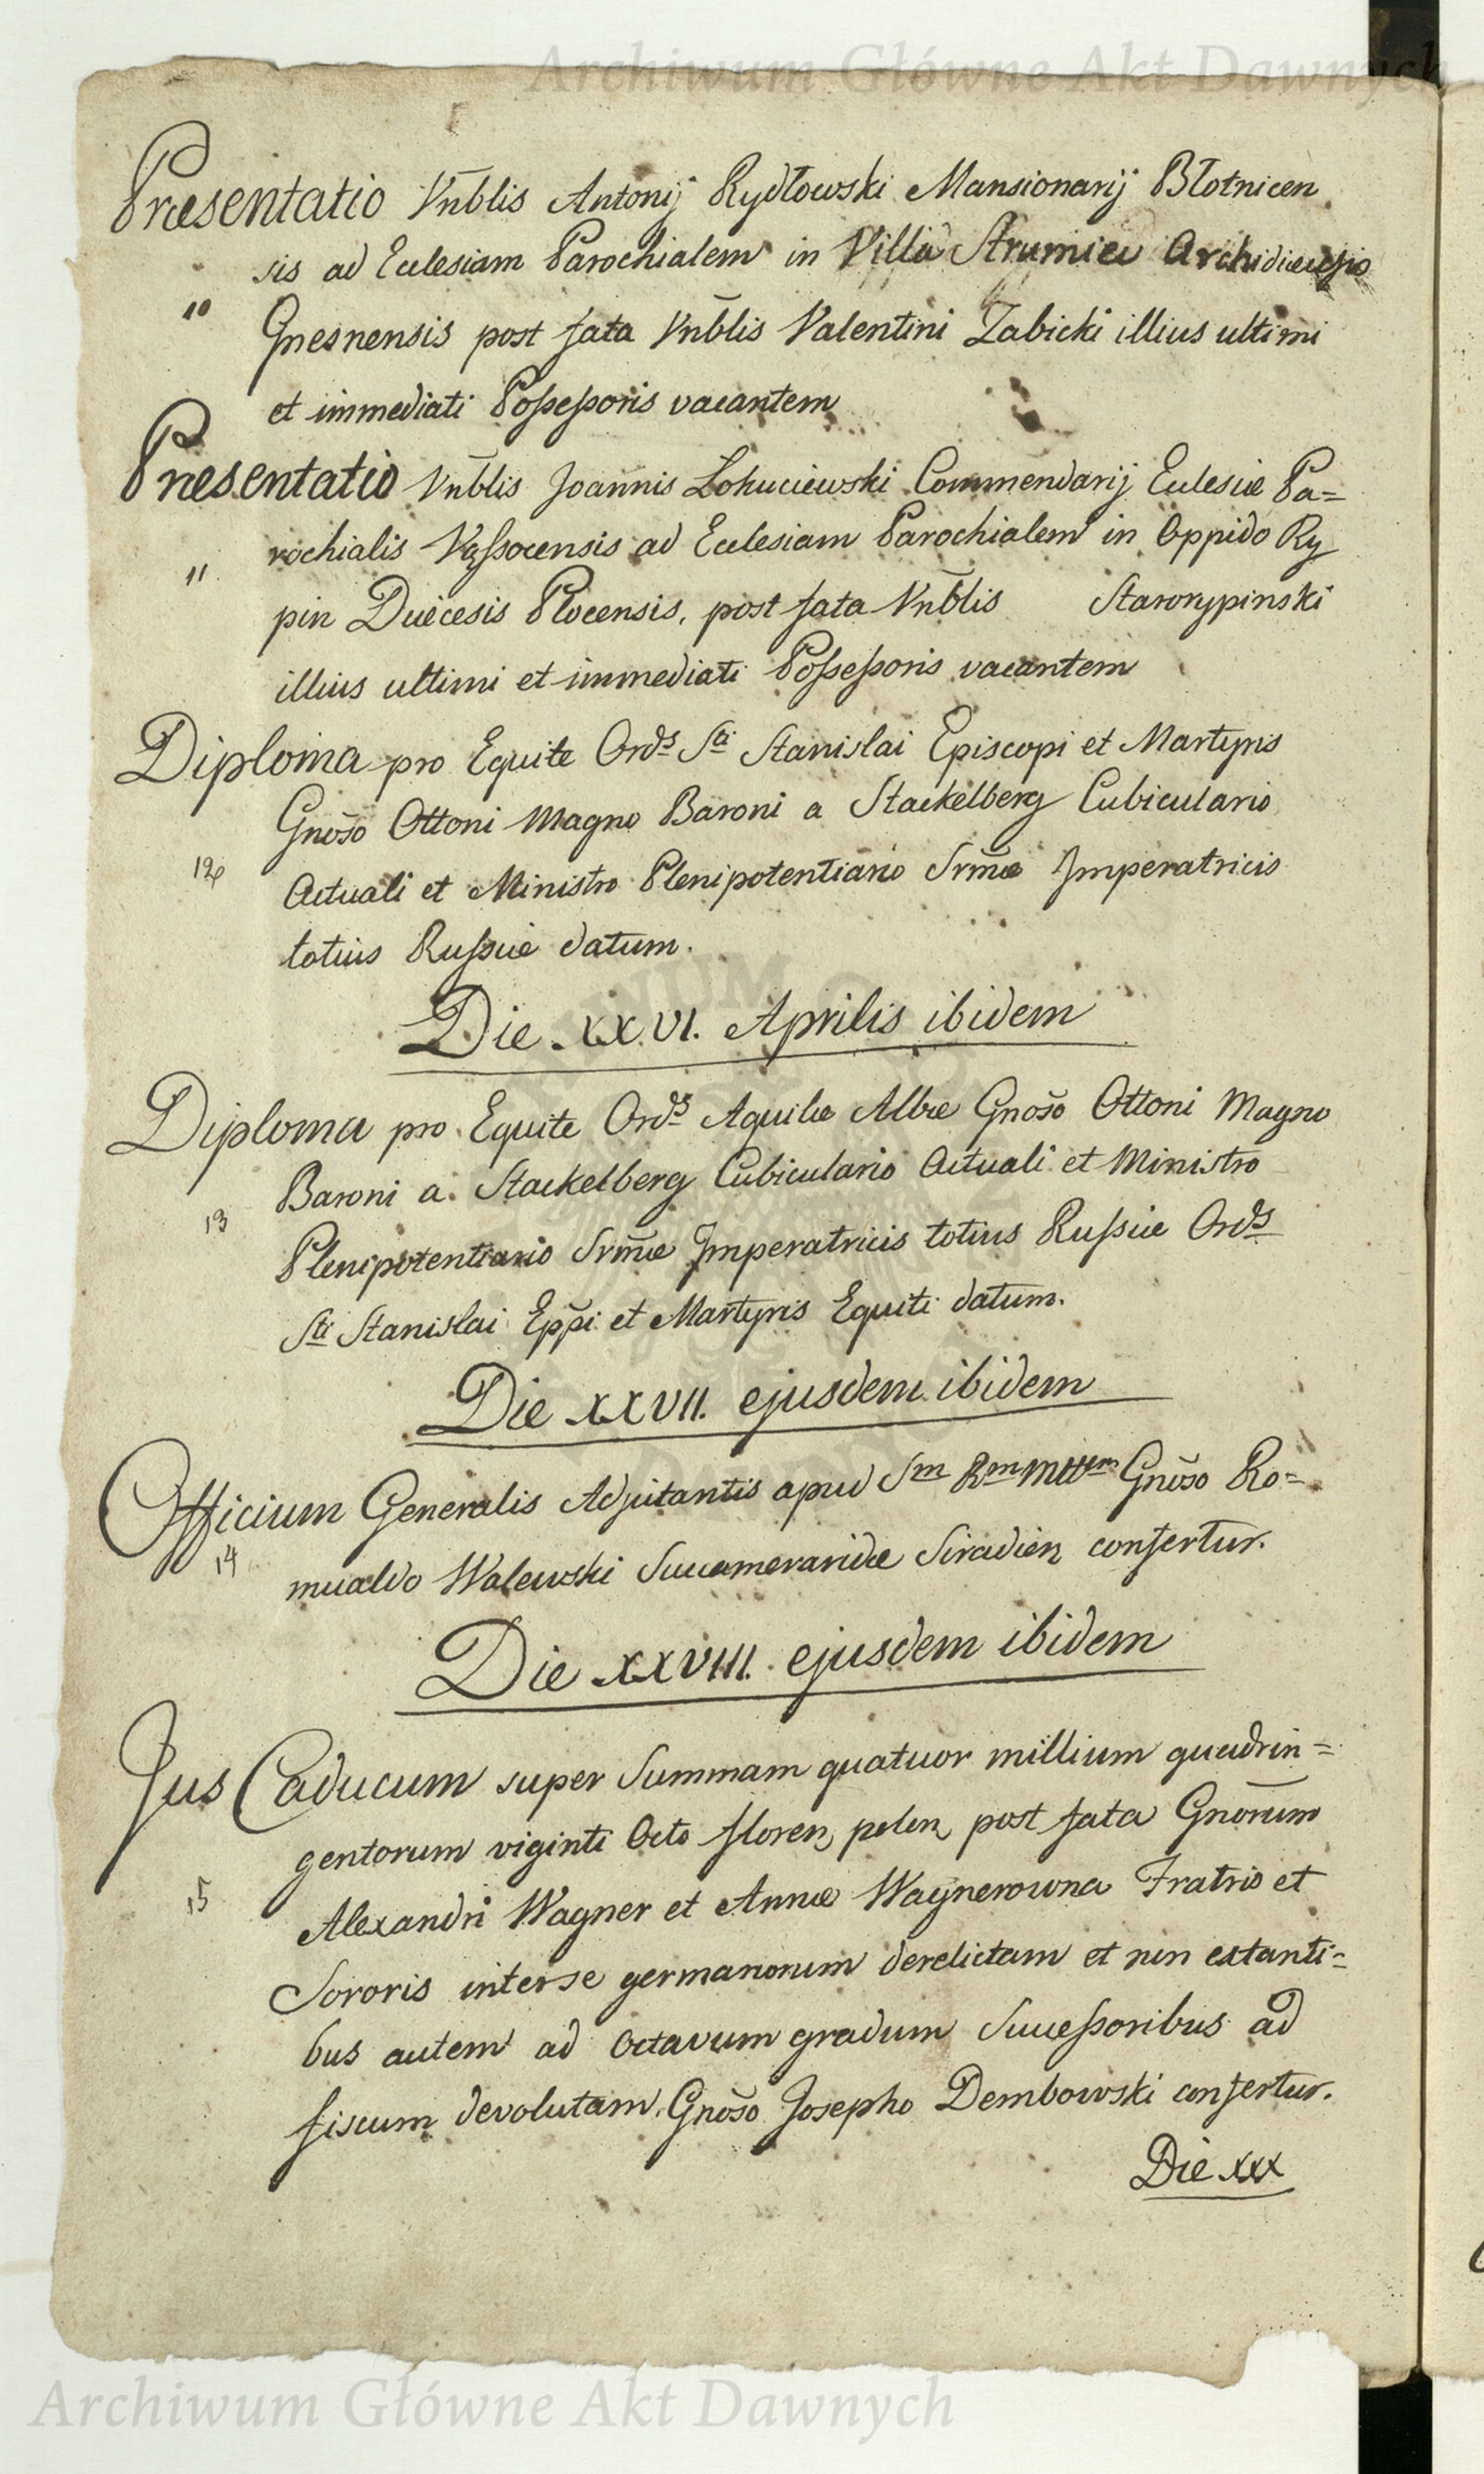 Archiwum Główne Akt Dawnych
Præsentatio Vnblis Antonij Rydłowski Mansionarij Błotnicen
sis ad Eclesiam Parochialem in Villa Strumiec Archidiæcesis
10 Gnesnensis post fata Vnblis Valentini Zabicki illius ultimi
et immediati Possessoris vacantem
Præsentatio Vnblis Joannis Lokuciewski Commendarij Eclesiæ Pa=
rochialis Vyssocensis ad Ecclesiam Parochialem in Oppido Ry
11 pin Diæcesis Plocensis, post fata Vnblis Starorypinski
illius ultimi et immediati Possessoris vacantem
Diploma pro Equite Ords Sti Stanislai Episcopi et Martyris
Gnoso Ottoni Magno Baroni a Stackelberg Cubiculario
12 Actuali et Ministro Plenipotentiario Srmæ Imperatricis
totius Russiæ datum.
Die XXVI. Aprilis ibidem
Diploma pro Equite Ords Aquilæ Albæ Gnoso Ottoni Magno
Baroni a Stackelberg Cubiculario Actuali et Ministro
13 Plenipotentiario Srmæ Imperatricis totius Russiæ Ords
Sti Stanislai Eppi et Martyris Equiti datum.
Die XXVII. ejusdem ibidem
Officium Generalis Adjutantis apud Sm Rm Mttem Gnoso Ro=
14 mualdo Walewski Succameraridæ Siradien confertur.
Die XXVIII. ejusdem ibidem
Jus Caducum super Summam quatuor millium quadrin=
gentorum viginti Octo floren polon post fata Gnorum
15 Alexandri Wagner et Annæ Wagnerowna Fratris et
Sororis interse germanorum derelictam et non extanti=
bus autem ad Octavum gradum Successoribus ad
fiscum devolutam Gnoso Josepho Dembowski confertur.
Die XXX
Archiwum Główne Akt Dawnych